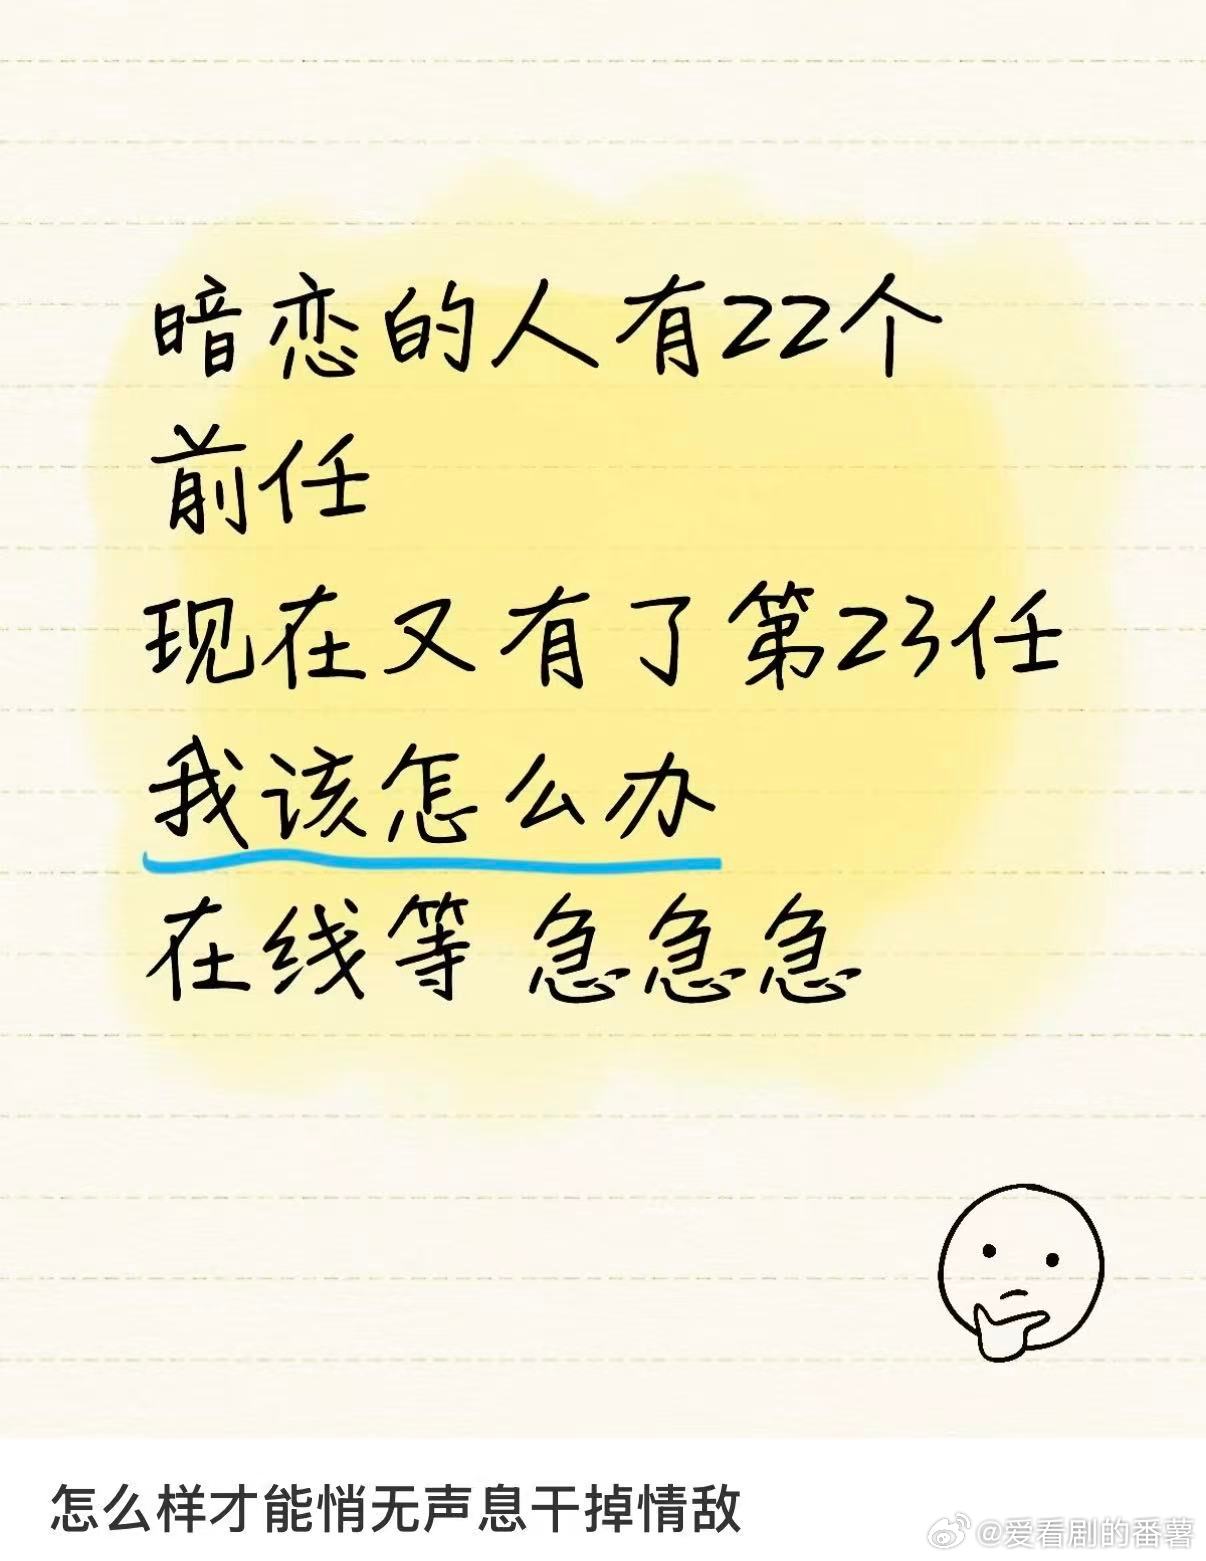 暗恋的人有22个
前任
现在又有了第23任
我该怎么办
在线等 急急急
怎么样才能悄无声息干掉情敌
@爱看剧的番薯